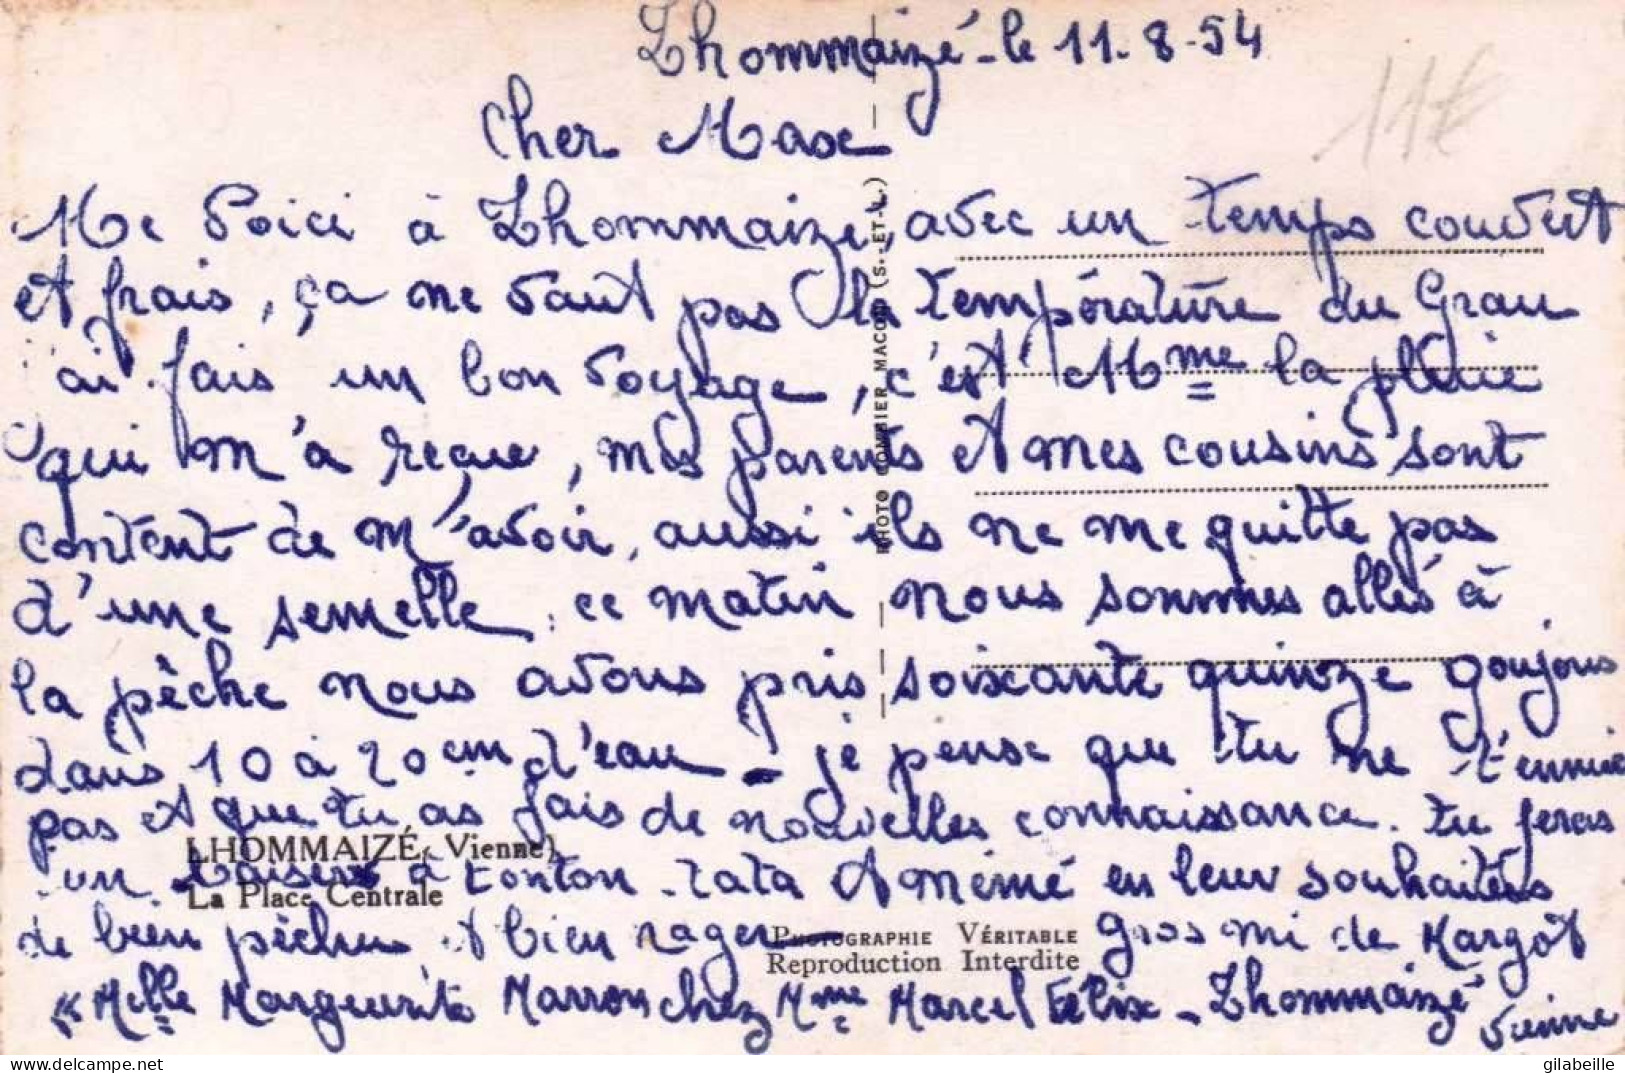 Lhommaizé - le 11.8-54
11€
Cher Max
Me Voici à Lhommaizé, avec un temps couvert
et frais, ça ne vaut pas la température du Grau
j'ai fais un bon voyage, c'est Mme la pluie
qui m'a reçue, mes parents et mes cousins sont
content de m'avoir, aussi ils ne me quitte pas
d'une semelle, ce matin nous sommes allés à
la pêche nous avons pris soixante quinze goujons
dans 10 à 20 cm d'eau - je pense que tu ne t'ennuie
pas et que tu as fais de nouvelles connaissance. tu feras
un baisers à tonton tata et mémé en leur souhaitens
de bien pêcher et bien nager - Gros mi de Margôt
"Melle Marguerite Marron chez Mme Marcel Félix - Lhommaizé
Vienne
LHOMMAIZÉ (Vienne)
La Place Centrale
PHOTOGRAPHIE VÉRITABLE
Reproduction Interdite
PHOTO COMBIER MACON (S.-ET-L.)
delcampe.net
gilabeille